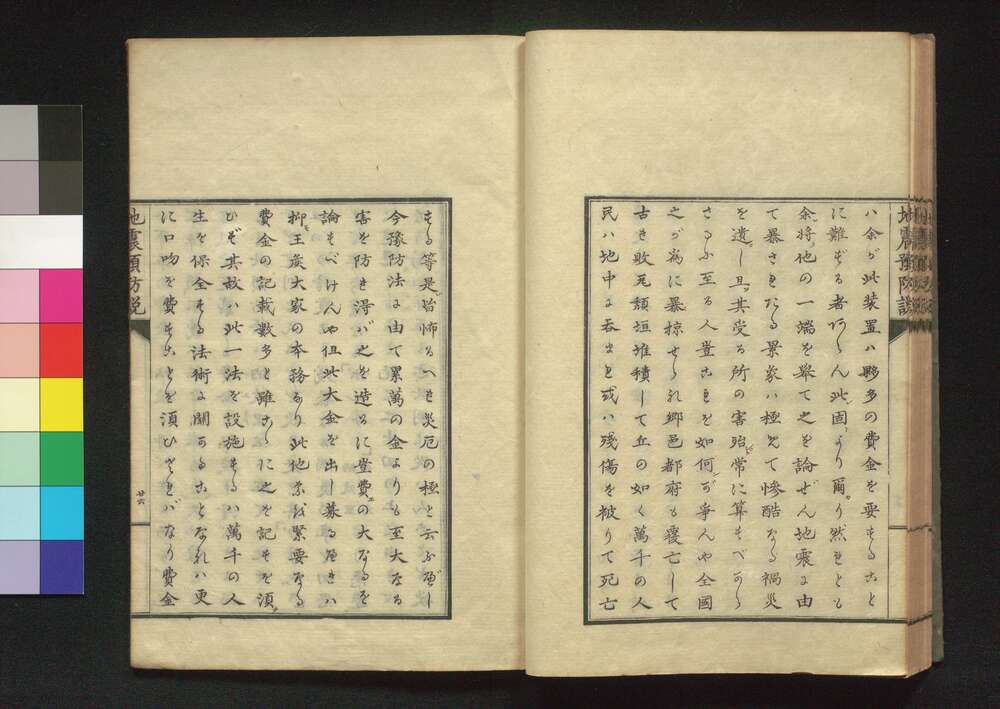 地震預防説
ハ余が此装置ハ夥多の費金を要することを
に難ずる者あらん此固より爾り然れとも
余将他の一端を挙て之を論ぜん地震に由
て暴されたる景象ハ極めて惨酷なる禍災
を遺し且其受る所の害殆常に算すべから
さるに至る人豈これを如何ぞ争んや全國
之が為に暴掠せられ郷邑都府も覆亡して
古き敗瓦頽垣堆積して丘の如く萬千の人
民ハ地中に呑まれ或ハ残傷を被りて死亡
する等是皆怖るへき災厄の極と云ふべし
今豫防法に由て累萬の金よりも至大なる
害を防き得バ之を造るに豈費の大なるを
論すべけんや但此大金を出し募るべきハ
抑王侯大家の本務なり此他猶緊要なる
費金の記載数多と雖こゝに之を記するを須
ひず其故ハ此一法を設施するハ萬千の人
生を保全する法術に關かることなれハ更
に口吻を費すことを須ひざれバなり費金
地震預防説
廿六